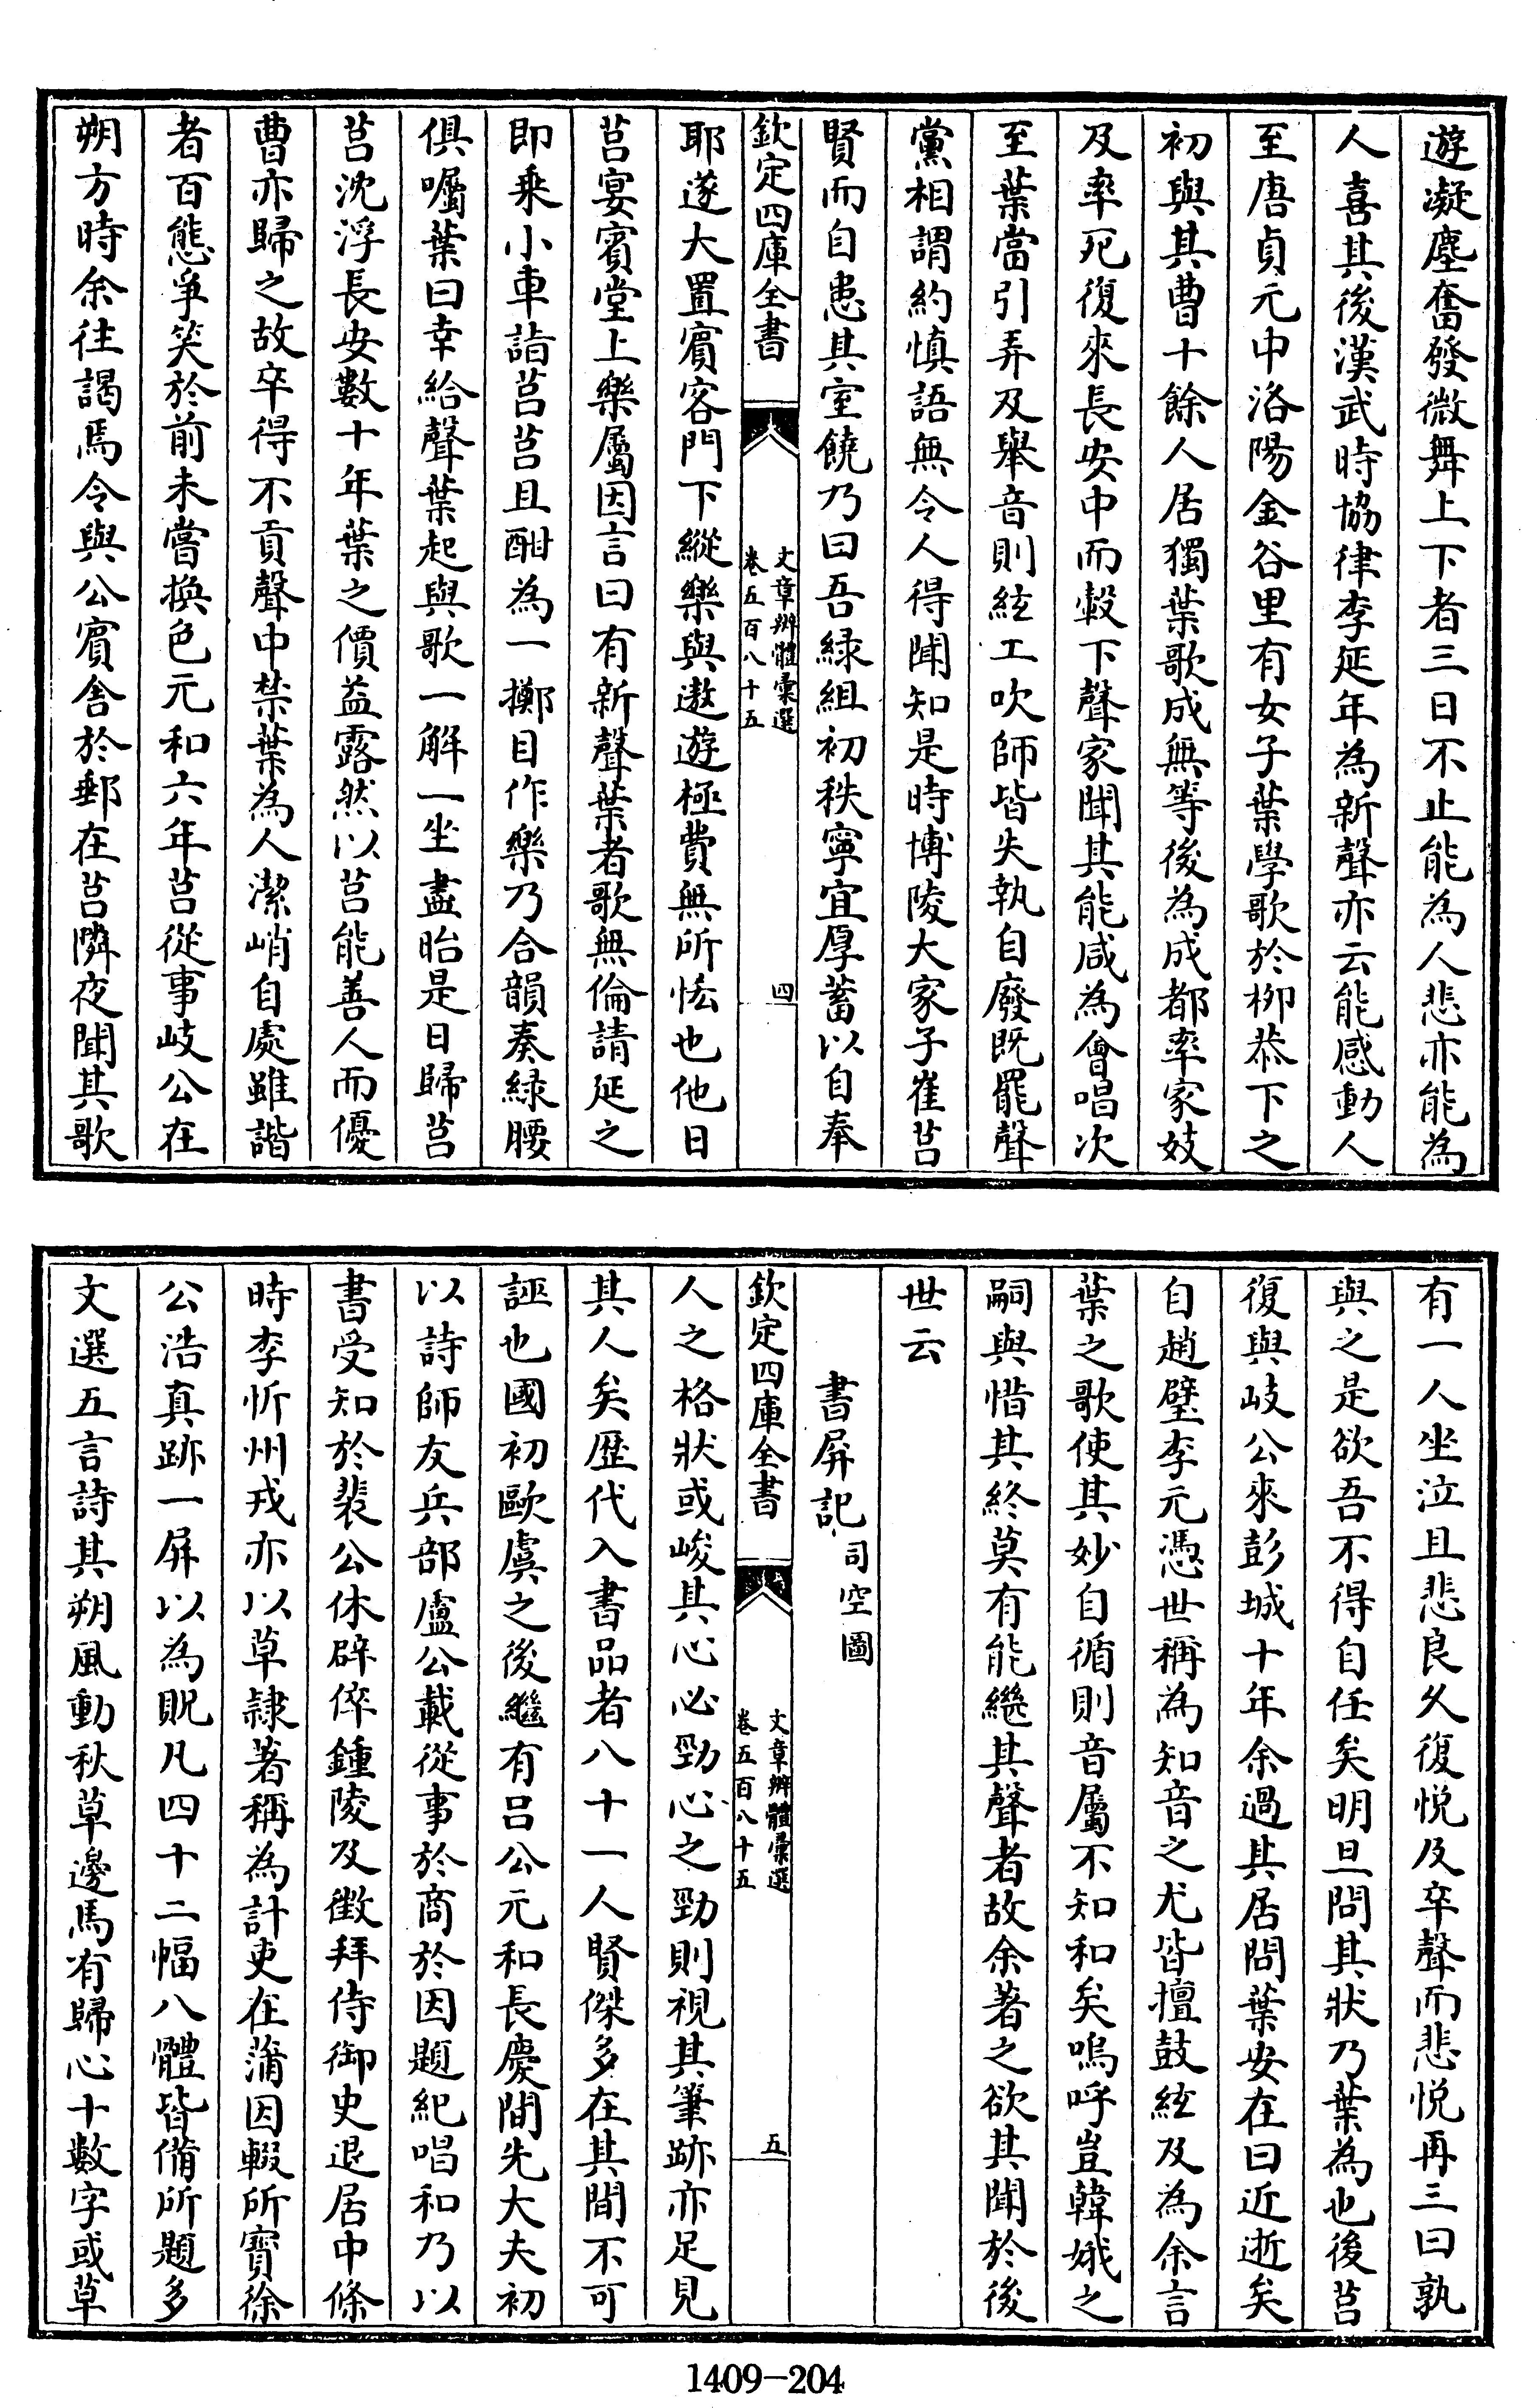 遊凝塵奮發微舞上下者三日不止能為人悲亦能為
人喜其後漢武時協律李延年為新聲亦云能感動人
至唐貞元中洛陽金谷里有女子葉學歌於柳恭下之
初與其曹十餘人居獨葉歌成無等後為成都率家妓
及率死復來長安中而轂下聲家聞其能咸為會唱次
至葉當引弄及舉音則絃工吹師皆失執自廢既罷聲
黨相謂約慎語無令人得聞知是時博陵大家子崔莒
賢而自患其室饒乃曰吾緑組初秩寧宜厚蓄以自奉
欽定四庫全書
文章辨體彙選
卷五百八十五
四
耶遂大置賔客門下縱樂與遨遊極費無所恡也他日
莒宴賔堂上樂屬因言曰有新聲葉者歌無倫請延之
即乗小車詣莒莒且酣為一擲目作樂乃合韻奏緑腰
俱囑葉曰幸給聲葉起與歌一解一坐盡眙是日歸莒
莒沈浮長安數十年葉之價益露然以莒能善人而優
曹亦歸之故卒得不貢聲中禁葉為人潔峭自處雖諧
者百態爭笑於前未嘗換色元和六年莒從事岐公在
朔方時余往謁焉令與公賔舍於郵在莒隣夜聞其歌
有一人坐泣且悲良久復悦及卒聲而悲悦再三曰孰
與之是欲吾不得自任矣明旦問其狀乃葉為也後莒
復與岐公來彭城十年余過其居問葉安在曰近逝矣
自趙璧李元憑世稱為知音之尤皆擅鼓絃及為余言
葉之歌使其妙自循則音屬不知和矣嗚呼豈韓娥之
嗣與惜其終莫有能繼其聲者故余著之欲其聞於後
世云
書屏記司空圖
欽定四庫全書
文章辨體彙選
卷五百八十五
五
人之格狀或峻其心必勁心之勁則視其筆跡亦足見
其人矣歴代入書品者八十一人賢傑多在其間不可
誣也國初歐虞之後繼有吕公元和長慶間先大夫初
以詩師友兵部盧公載從事於商於因題紀唱和乃以
書受知於裴公休辟倅鍾陵及徵拜侍御史退居中條
時李忻州戎亦以草隷著稱為計吏在蒲因輟所寳徐
公浩真跡一屏以為貺凡四十二幅八體皆備所題多
文選五言詩其朔風動秋草邊馬有歸心十數字或草
1409-204